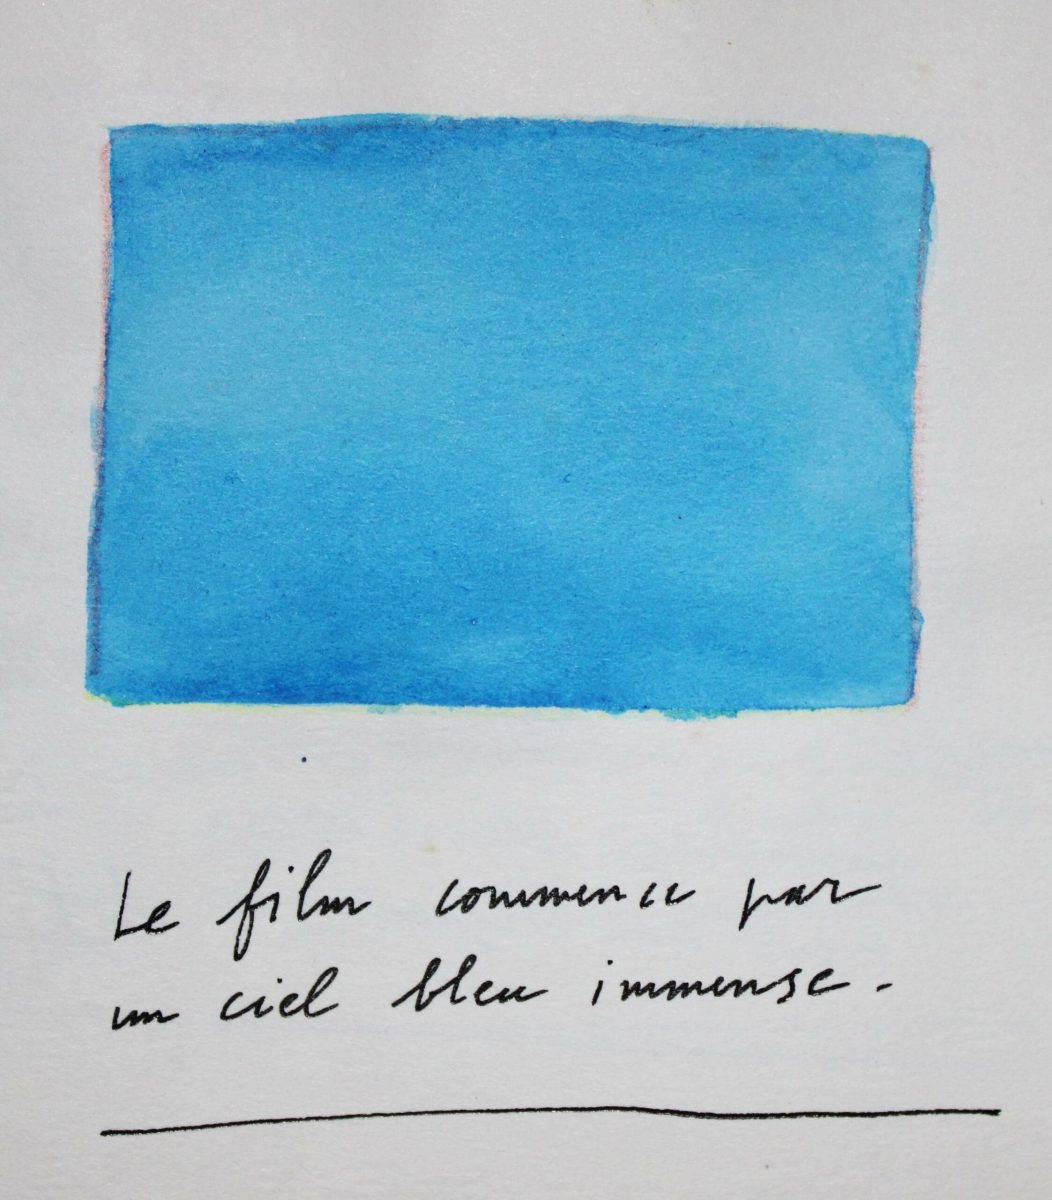 Le film commence par
un ciel bleu immense.